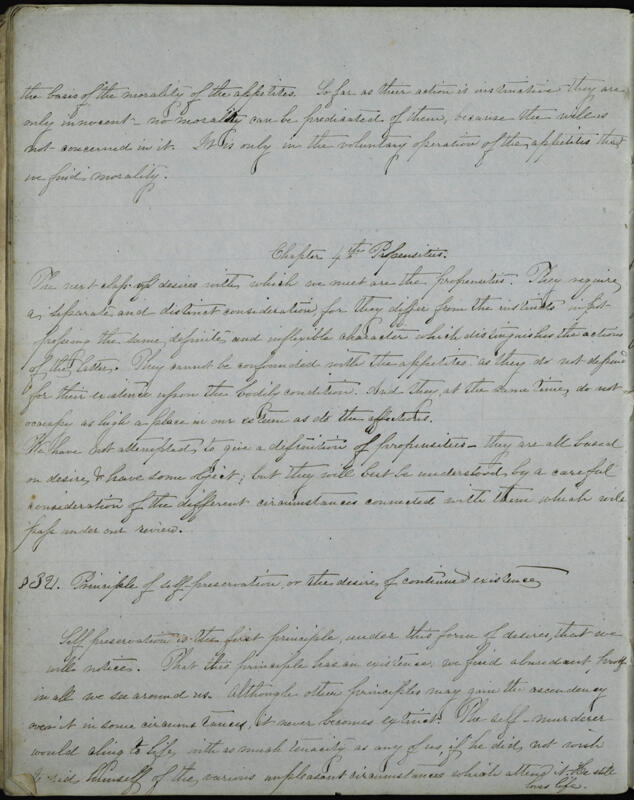 the basis of the morality of the appetites. So far as their action is instinctive they are
only innocent – no morality can be predicated of them, because the will is
not concerned in it. It is only in the voluntary operation of the appetites that
we find morality.
Chapter 4th Propensities.
The next class of desires with which we meet are the propensities. They require
a separate and distinct consideration, for they differ from the instincts in not
possessing the same definite and inflexible character which distinguishes the actions
of the latter. They cannot be confounded with the appetites as they do not depend
for their existence upon the bodily condition. And they, at the same time, do not
occupy as high a place in our esteem as do the affections.
We have not attempted to give a definition of propensities – they are all based
on desire, & have some object; but they will best be understood by a careful
consideration of the different circumstances connected with them which will
pass under our review.
§321. Principle of self-preservation, or the desire of continued existence
Self preservation is the first principle, under this form of desires, that we
will notice. That this principle has an existence, we find abundant proof
in all we see around us. Although other principles may gain the ascendency
over it in some circumstances, it never becomes extinct. The self-murderer
would cling to life, with as much tenacity as any of us, if he did not wish
to rid himself of the various unpleasant circumstances which attend it. He still
loves life.